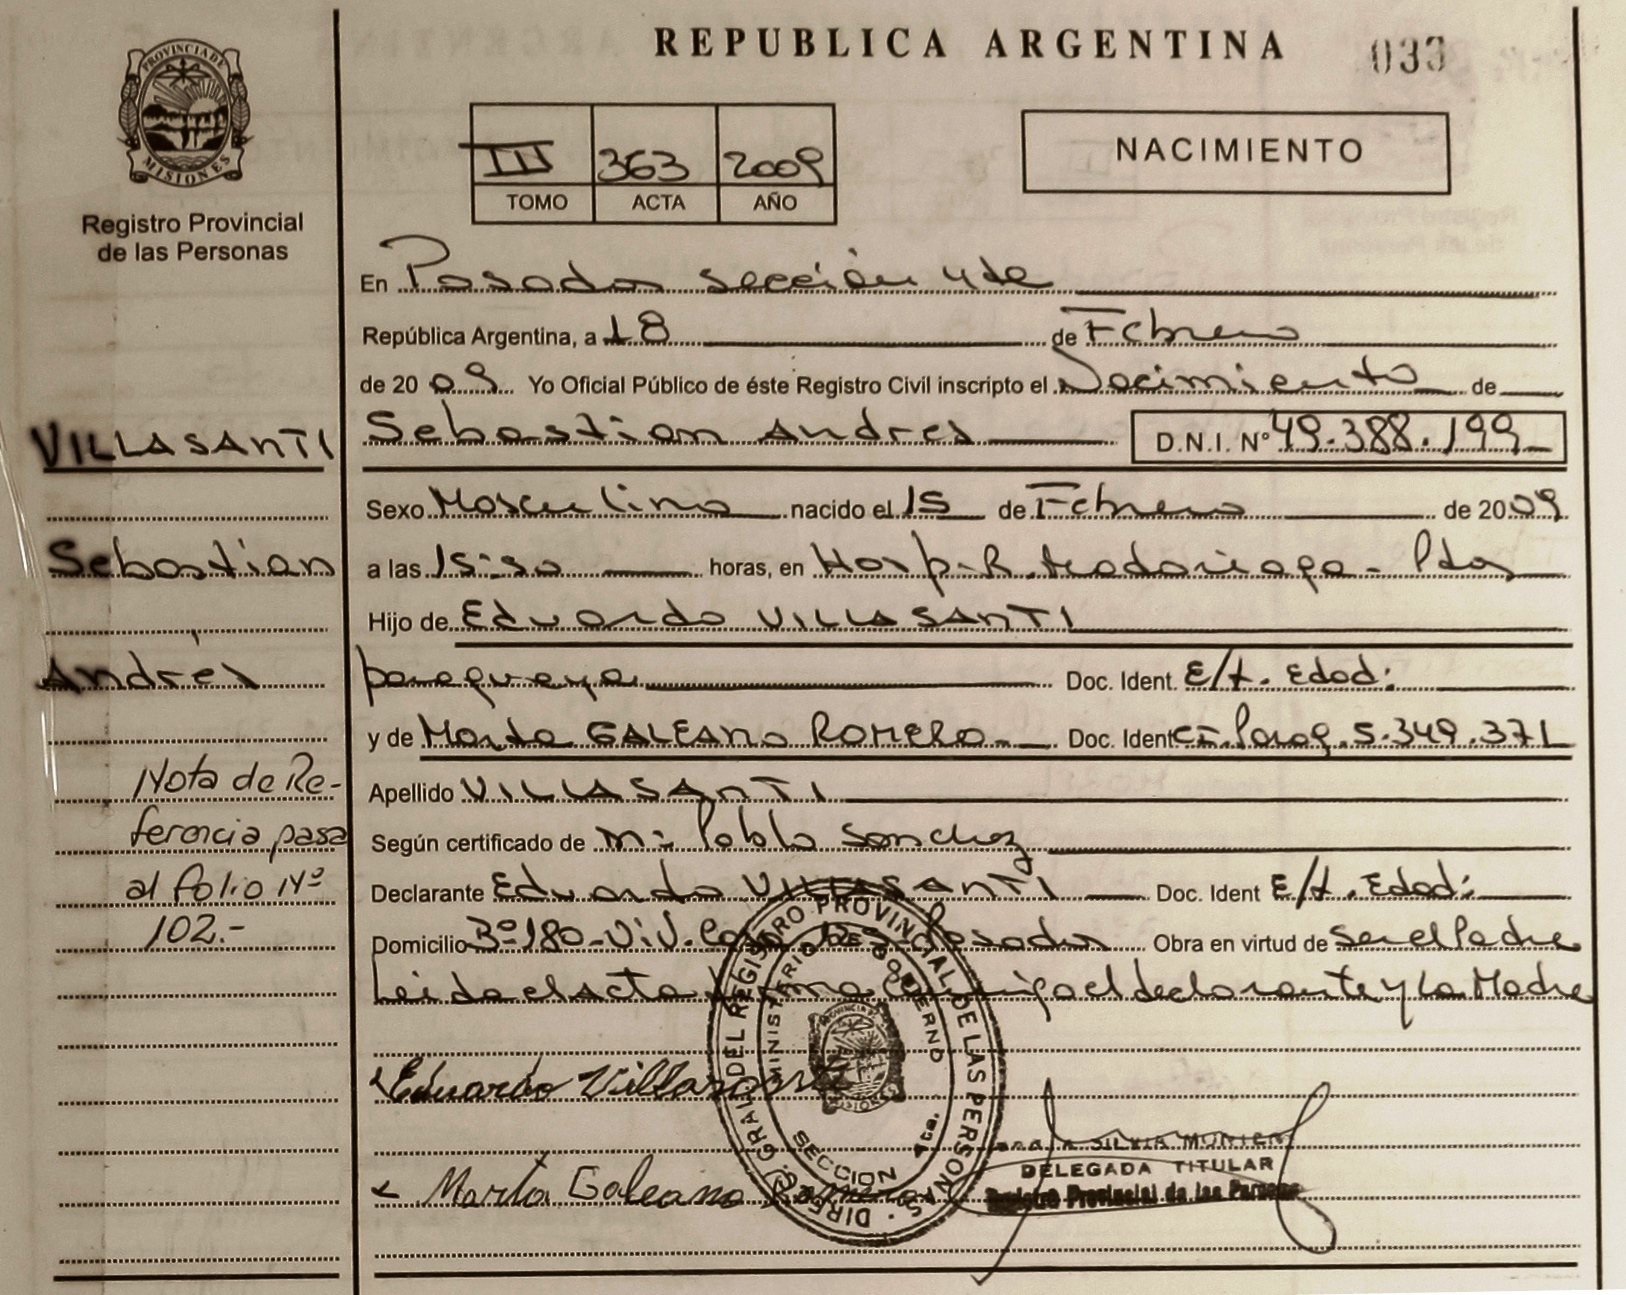 REPUBLICA ARGENTINA
033
PROVINCIA DE
MISIONES
Registro Provincial
de las Personas
III 363 2009
TOMO ACTA AÑO
NACIMIENTO
En Posadas sección 4ta
República Argentina, a 18 de Febrero
de 2009 Yo Oficial Público de éste Registro Civil inscripto el Nacimiento de
Sebastian Andres D.N.I. Nº 49.388.199
Sexo Masculino nacido el 15 de Febrero de 2009
a las 15:30 horas, en Hosp. R. Madariaga - Pdas
Hijo de Eduardo VILLASANTI
paraguaya Doc. Ident. E/t. Edad:
y de Marta GALEANO ROMERO Doc. Ident CI. Parag. 5.349.371
Apellido VILLASANTI
Según certificado de M: Pablo Sanchez
Declarante Eduardo VILLASANTI Doc. Ident E/t. Edad:
Domicilio Bº180-Viv. Posadas Obra en virtud de Ser el Padre
Leida el acta firma conmigo el declarante y la Madre
VILLASANTI
Sebastian
Andrés
Nota de Re-
ferencia pasa
al folio Nº
102.-
Eduardo Villasanti
Marta Galeano Romero
DIREC. GRAL. DEL REGISTRO PROVINCIAL DE LAS PERSONAS
MINISTERIO DE GOBIERNO
PROVINCIA DE
MISIONES
SECCION 4ta.
SILVIA
DELEGADA TITULAR
Registro Provincial de las Personas